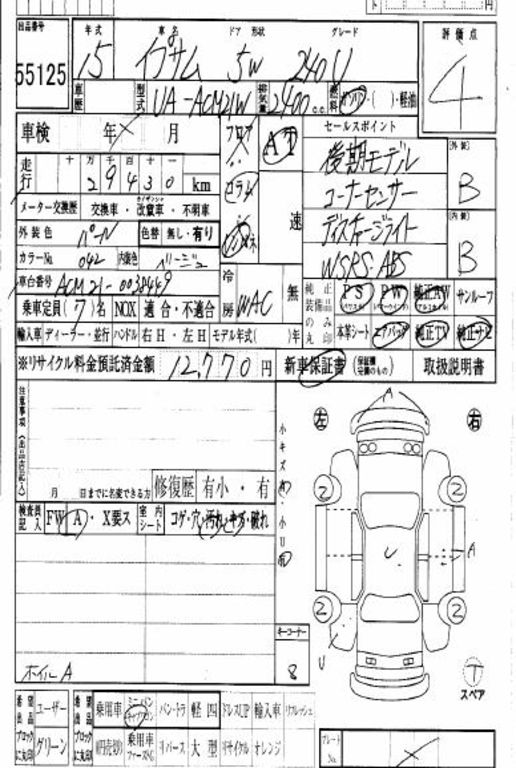 円
出品番号 年式 車名 ドア 形状 グレード 評価点
55125 15 イプサム 5W 240U 4
車歴 型式 UA-ACM21W 排気量 2400 c.c. 燃料 ガソリン・( )・軽油
車検 年 月 フロア AT セールスポイント
走行 十 万 千 百 十 一 後期モデル [外装]
29430 km コラム コーナーセンサー B
メーター交換歴 交換車・改竄車・不明車 速 ディスチャージライト [内装]
外装色 パール 色替 無し・有り B
カラーNo. 042 内装色 ベージュ W.SRS.ABS
車台番号 ACM21-0038449 冷房 WAC 無 純正装備品のみ丸印 PS PW 純正AW サンルーフ
乗車定員(7)名 NOX 適合・不適合
輸入車 ディーラー・並行 ハンドル 右H・左H モデル年式( )年 本革シート エアバッグ 純正TV 純正ナビ
※リサイクル料金預託済金額 12,770円 新車保証書 取扱説明書
注意事項(出品店記入) 左 A 右
小キズ
月 日までに名変できる方 修復歴 有小・有 A・小U
検査員記入 FW A・X要ス 室内シート コゲ・穴・汚れ・キズ・破れ
2 2
U A
2 2
キーコーナー
ホイルA 8 U T
スペア
希望出品 ユーザー 希望出品 乗用車 ミニバン バン・トラ 軽四 ドレスUP 輸入車 リフレッシュ
ブロックに丸印 グリーン ブロックに丸印 乗用車 リバース 大型 リサイクル オレンジ
プレートNo.